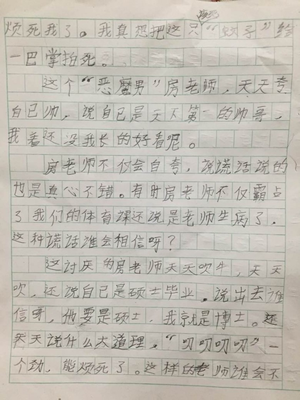 烦死我了。我真想把这只“蚊子”给
一巴掌拍死。
这个“恶魔男”房老师，天天夸
自己帅，说自己是天下第一的帅哥，
我看还没我长的好看呢。
房老师不仅会自夸，说谎话说的
也是真心不错。有时房老师不仅霸占
了我们的体育课还说是老师生病了。
这种谎话谁会相信呀？
这讨厌的房老师天天吹牛，天天
吹，还说自己是硕士毕业。说出去谁
信呀，他要是硕士，我就是博士。还
天天说什么大道理，“叨叨叨叨”一
个劲，能烦死了。这样的老师谁会不